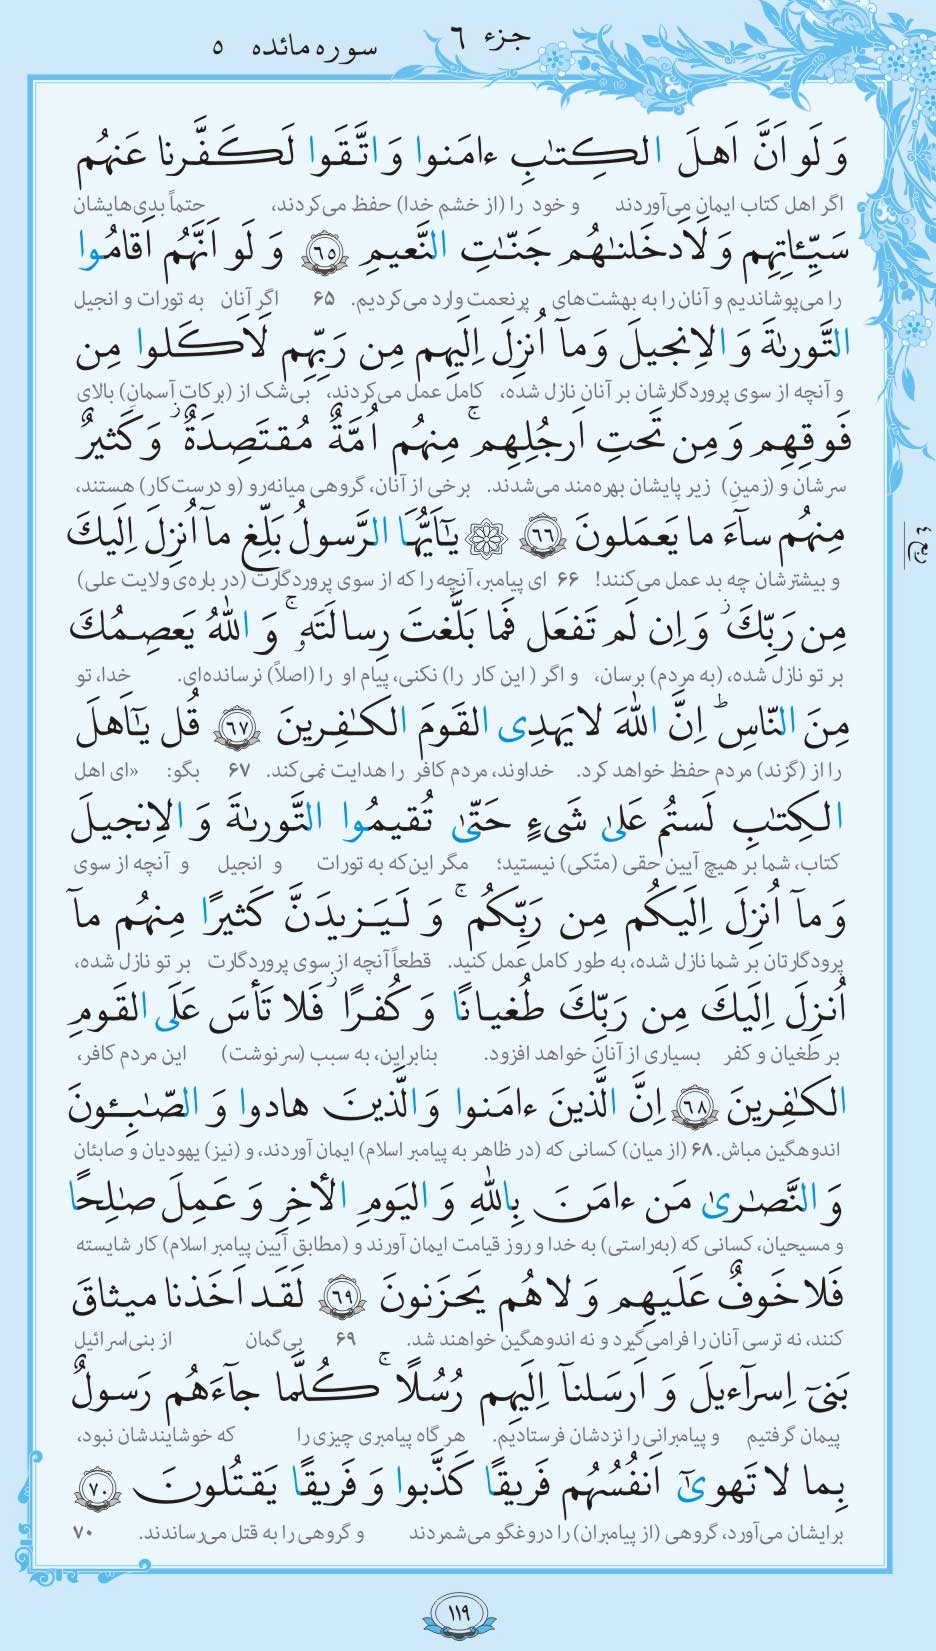 جزء ۶
سوره مائده ۵
وَ لَو اَنَّ اَهلَ الكِتٰبِ ءامَنوا وَ اتَّقَوا لَكَفَّرنا عَنهُم
اگر اهل کتاب ایمان می‌آوردند و خود را (از خشم خدا) حفظ می‌کردند، حتماً بدی‌هایشان
سَيِّئاتِهِم وَ لَاَدخَلنٰهُم جَنّٰتِ النَّعيمِ ﴿٦٥﴾ وَ لَو اَنَّهُم اَقامُوا
را می‌پوشاندیم و آنان را به بهشت‌های پرنعمت وارد می‌کردیم. ۶۵ اگر آنان به تورات و انجیل
التَّورىٰةَ وَ الاِنجيلَ وَ مآ اُنزِلَ اِلَيهِم مِن رَبِّهِم لَاَكَلوا مِن
و آنچه از سوی پروردگارشان بر آنان نازل شده، کامل عمل می‌کردند، بی‌شک از (برکات آسمانِ) بالای
فَوقِهِم وَ مِن تَحتِ اَرجُلِهِم ۚ مِنهُم اُمَّةٌ مُقتَصِدَةٌ ۖ وَ كَثيرٌ
سرشان و (زمینِ) زیر پایشان بهره‌مند می‌شدند. برخی از آنان، گروهی میانه‌رو (و درست‌کار) هستند،
مِنهُم سآءَ ما يَعمَلونَ ﴿٦٦﴾ ۞ يٰٓاَيُّهَا الرَّسولُ بَلِّغ مآ اُنزِلَ اِلَيكَ
و بیشترشان چه بد عمل می‌کنند! ۶۶ ای پیامبر، آنچه را که از سوی پروردگارت (در باره‌ی ولایت علی)
ربع ۴
مِن رَبِّكَ ۖ وَ اِن لَم تَفعَل فَما بَلَّغتَ رِسالَتَهٗ ۚ وَ اللهُ يَعصِمُكَ
بر تو نازل شده، (به مردم) برسان، و اگر ( این کار را) نکنی، پیام او را (اصلاً) نرسانده‌ای. خدا، تو
مِنَ النّاسِ ۗ اِنَّ اللهَ لا يَهدِى القَومَ الكٰفِرينَ ﴿٦٧﴾ قُل يٰٓاَهلَ
را از (گزند) مردم حفظ خواهد کرد. خداوند، مردم کافر را هدایت نمی‌کند. ۶۷ بگو: «ای اهل
الكِتٰبِ لَستُم عَلىٰ شَىءٍ حَتّىٰ تُقيمُوا التَّورىٰةَ وَ الاِنجيلَ
کتاب، شما بر هیچ آیین حقی (متّکی) نیستید؛ مگر این‌که به تورات و انجیل و آنچه از سوی
وَ مآ اُنزِلَ اِلَيكُم مِن رَبِّكُم ۚ وَ لَيَزيدَنَّ كَثيرًا مِنهُم مآ
پرودگارتان بر شما نازل شده، به طور کامل عمل کنید. قطعاً آنچه از سوی پروردگارت بر تو نازل شده،
اُنزِلَ اِلَيكَ مِن رَبِّكَ طُغيانًا وَ كُفرًا ۖ فَلا تَأسَ عَلَى القَومِ
بر طغیان و کفر بسیاری از آنان خواهد افزود. بنابراین، به سبب (سرنوشت) این مردم کافر،
الكٰفِرينَ ﴿٦٨﴾ اِنَّ الَّذينَ ءامَنوا وَالَّذينَ هادوا وَ الصّٰبِـٔونَ
اندوهگین مباش. ۶۸ (از میان) کسانی که (در ظاهر به پیامبر اسلام) ایمان آوردند، و (نیز) یهودیان و صابئان
وَ النَّصٰرىٰ مَن ءامَنَ بِاللهِ وَ اليَومِ الأخِرِ وَ عَمِلَ صٰلِحًا
و مسیحیان، کسانی که (به‌راستی) به خدا و روز قیامت ایمان آورند و (مطابق آیین پیامبر اسلام) کار شایسته
فَلا خَوفٌ عَلَيهِم وَ لا هُم يَحزَنونَ ﴿٦٩﴾ لَقَد اَخَذنا ميثاقَ
کنند، نه ترسی آنان را فرامی‌گیرد و نه اندوهگین خواهند شد. ۶۹ بی‌گمان از بنی‌اسرائیل
بَنىٓ اِسرآءيلَ وَ اَرسَلنآ اِلَيهِم رُسُلًا ۚ كُلَّما جآءَهُم رَسولٌ
پیمان گرفتیم و پیامبرانی را نزدشان فرستادیم. هر گاه پیامبری چیزی را که خوشایندشان نبود،
بِما لا تَهوىٰٓ اَنفُسُهُم فَريقًا كَذَّبوا وَ فَريقًا يَقتُلونَ ﴿٧٠﴾
برایشان می‌آورد، گروهی (از پیامبران) را دروغگو می‌شمردند و گروهی را به قتل می‌رساندند. ۷۰
۱۱۹